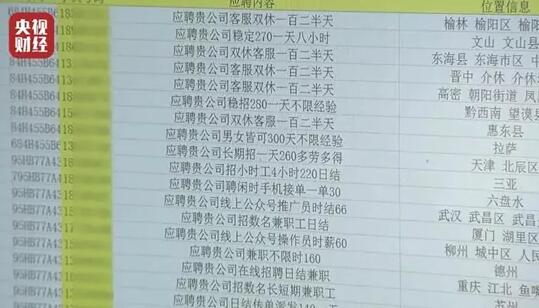 央视
财经
应聘内容 位置信息
684H455B64 183 应聘贵公司客服双休一百二半天 榆林 榆阳区 榆阳
84H455B6 应聘贵公司稳定270一天八小时 文山 文山县
84H455B6 应聘贵公司双休客服一百二半天 东海县 东海市区 中
84H455B6 应聘贵公司客服双休一百二半天 晋中 介休 介休
84H455B64 应聘贵公司客服双休一百二半天 高密 朝阳街道 凤
84H455B641 应聘贵公司稳招280一天不限经验 黔西南 望谟县
84H455B6418 应聘贵公司双休客服一百二半天 惠东县
84H455B6415 应聘贵公司男女皆可300天不限经验 拉萨
684H455B6418 应聘贵公司长期招一天260多劳多得 天津 北辰区
95HB77A4315 应聘贵公司招小时工4小时220日结 三亚
795HB77A4318 应聘贵公司聘闲时手机接单一单30 六盘水
95HB77A4315 应聘贵公司线上公众号推广员时结66 武汉 武昌区 武昌
95HB77A431 应聘贵公司招数名兼职工日结 厦门 湖里区
95HB77A4317 应聘贵公司线上公众号操作员时薪60 柳州 城中区 人民
95HB77A4313 应聘贵公司兼职不限时160 德州
95HB77A431 应聘贵公司在线招聘日结兼职 重庆 江北 鱼嘴
95HB77A43 应聘贵公司招数名长短期兼职工 苏州
日结传单派发140一天